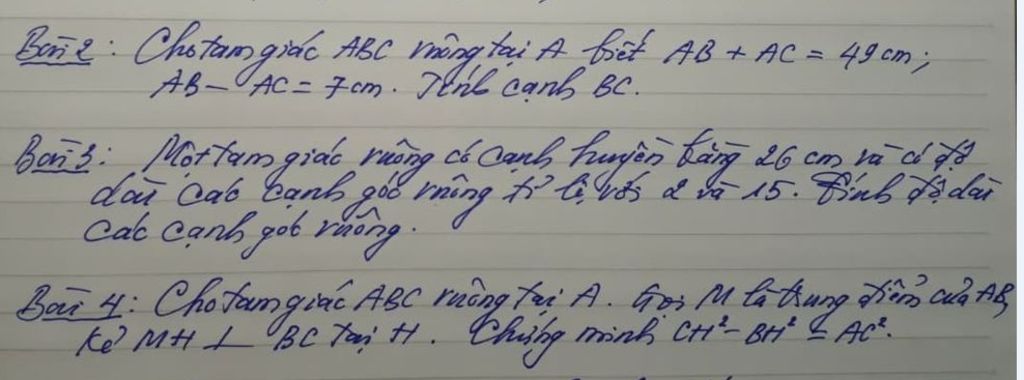 Bài 2: Cho tam giác ABC vuông tại A biết AB + AC = 49 cm;
AB - AC = 7 cm. Tính cạnh BC.
Bài 3: Một tam giác vuông có cạnh huyền bằng 26 cm và có độ
dài các cạnh góc vuông tỉ lệ với 2 và 15. Tính độ dài
các cạnh góc vuông.
Bài 4: Cho tam giác ABC vuông tại A. Gọi M là trung điểm của AB,
Kẻ MH ⊥ BC tại H. Chứng minh CH² - BH² = AC².